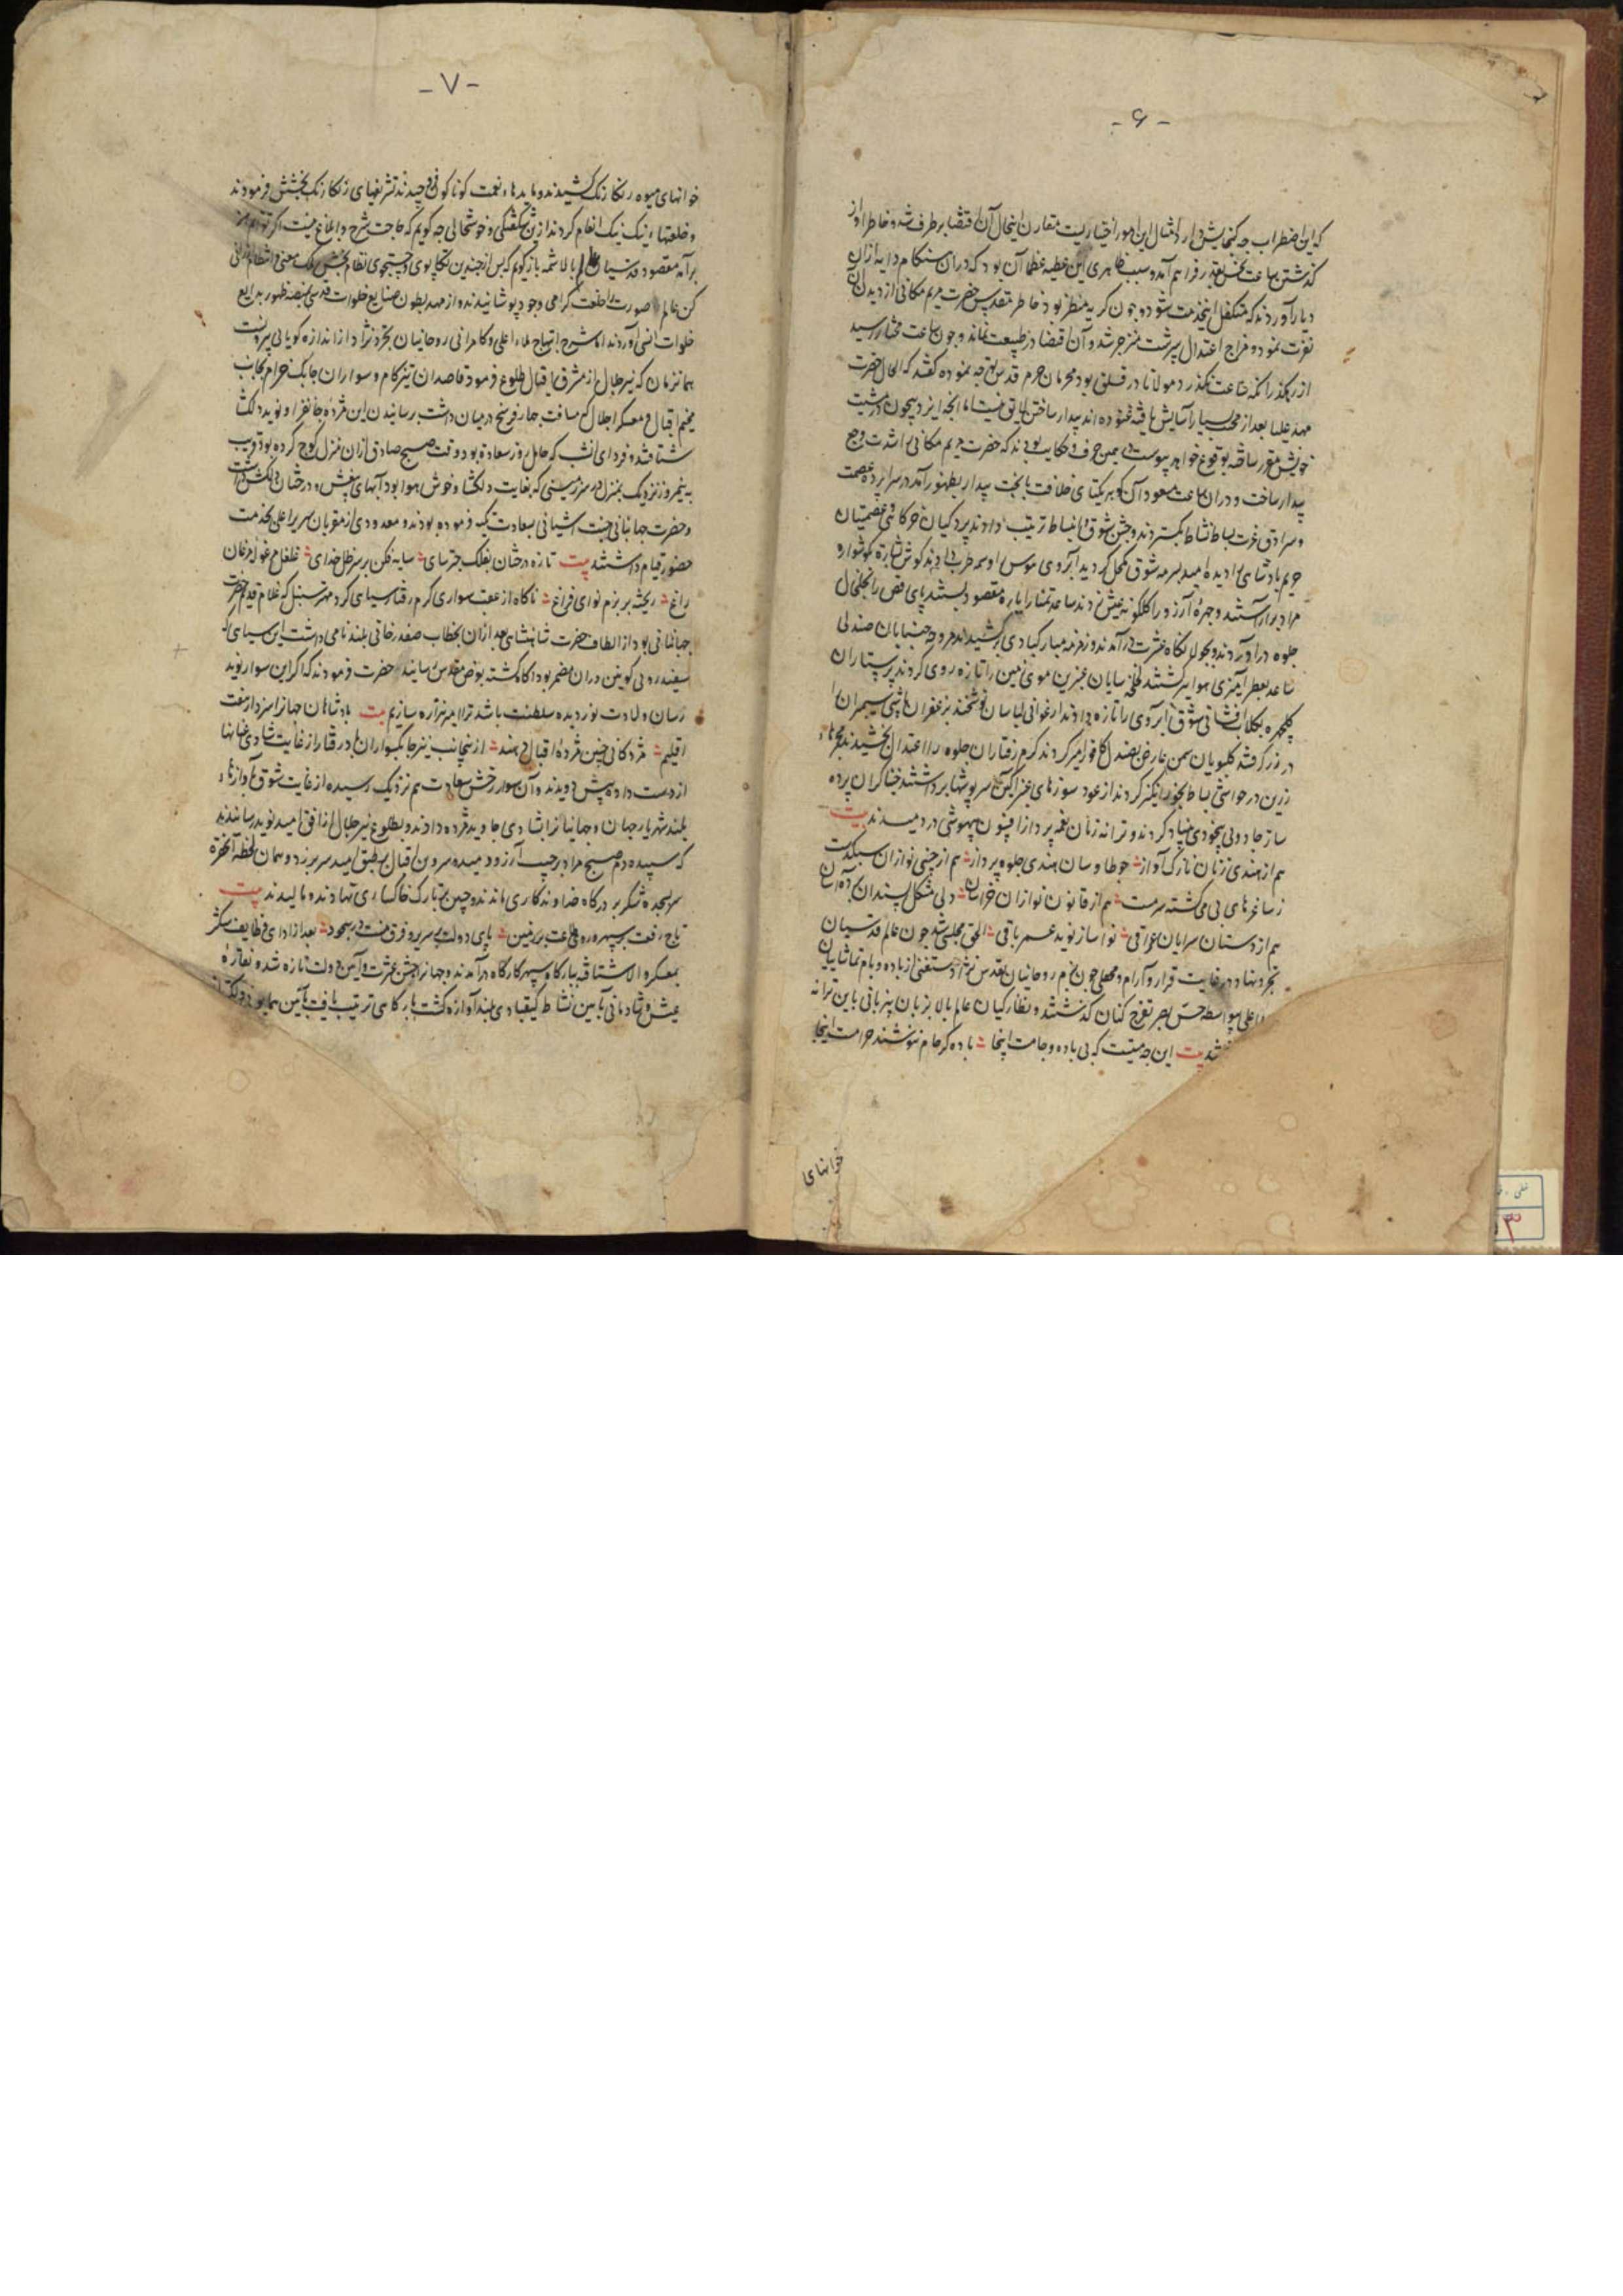 - ۶ -
که این اضطراب چه گنجایش دارد امثال این امور اختیاریست مقارن اینحال آن اقتضا برطرف شد و خاطر او از
گذشتن ساعت نحس بقدر فراهم آمد و سبب ظاهری این عطیه عظما آن بود که در ان هنگام دایه ازان
دیار آوردند که متکفل اینخدمت شود و چون کریه منظر بود خاطر مقدس حضرت مریم مکانی از دیدن آن
نفرت نمود و مزاج اعتدال سرشت منزجر شد و آن اقتضا در طبیعت نماند و چون ساعت مختار رسید
از رهگذر آنکه ساعت نگذرد مولانا در قلق بود محرمان حرم قدس توجه نموده گفتند که الحال حضرت
مهد علیا بعد از محنت بسیار آسایش یافته غنوده اند بیدار ساختن لایق نیست اما آنچه ایزد بیچون در مشیت
خویش مقرر ساخته بوقوع خواهد پیوست در همین حرف و حکایت بودند که حضرت مریم مکانی را شدت وجع
بیدار ساخت و در ان ساعت مسعود آن گوهر یکتای خلافت با بخت بیدار بظهور آمد در سراپرده عصمت
و سرادق عزت بساط نشاط بگستردند و جشن شوق و انبساط ترتیب دادند پردگیان خرگاهی و عصمتیان
حریم پادشاهی را دیده امید بسرمه شوق مکحل گردید ابروی هوس را وسمه طرب دادند گوش بشارت گوشواره
مراد برآراستند و چهره آرزو را گلگونه عیش زدند ساعد تمنا را یاره مقصود بستند پای رقص را خلخال
جلوه درآوردند و بجولانگاه عشرت درآمدند و زمزمه مبارکبادی برکشیدند مروحه جنبانان صندلی
ساعد بعطر آمیزی هوا برگشتند غالیه سایان عنبرین موی زمین را تازه روی کردند پرستاران
گلچهره بگلاب افشانی شوق را آبروی تازه دادند ارغوانی لباسان نوشخند بزعفران پاشی سیمبران را
در زر گرفتند گلبویان سمن عارض بصندل کافور آمیز کردند گرم رفتاران جلوه را اعتدال بخشیدند مجمرهای
زرین در حواشی بساط بخور انگیز کردند از عود سوزهای عنبر آگین سرپوشها برداشتند خنیاگران پرده
ساز جادوئی بیخودی بنیاد کردند و ترانه زنان نغمه پرداز افسون بیهوشی در دمیدند بیت
هم از هندی زنان نازک آواز چو طاوسان هندی جلوه پرداز هم از چینی نوازان سبکدست
ز ساغرهای بی می گشته سرمست هم از قانون نوازان خراسان دلی مشکل پسندان برده آسان
هم از دستان سرایان عراقی نوا ساز نوید عمر باقی الحق مجلسی شد چون عالم قدسیان
تجرد نهاد در غایت قرار و آرام و محفلی چون بزم روحانیان تقدس نژاد مستغنی از باده و جام تماشائیان
اعلی بواسطه حس بصر تفرج کنان گذشتند و نظارگیان عالم بالا بزبان بیزبانی باین ترانه
شد بیت این چه مستیست که بی باده و جامست اینجا باده کز جام ننوشند حرامست اینجا
خوانهای
- ۷ -
خوانهای میوه رنگارنگ کشیدند و مایدهاء نعمت گوناگون فرو چیدند تشریفهای رنگارنگ بخشش فرمودند
و خلعتهاء ینگ ینگ انعام کردند ازین شگفتگی و خوشحالی چه گویم که حاجت شرح و ابلاغ نیست اگر توانم از
برآمد مقصود قدسیان بالا شمه بازگویم که پس از چندین تکاپوی و جستجوی نظام بخش ملک معنی و انتظام
کن عالم صورت را خلعت گرامی وجود پوشانیدند و از مهد بطون صنایع خلوات قدس بمنصه ظهور بدایع
جلوات انسی آوردند اما شرح ابتهاج ملاء اعلی و کامرانی روحانیان تجرد نژاد از اندازه گویائی بیرونست
همانزمان که نیر جلال از مشرق اقبال طلوع فرمود قاصدان تیز گام و سواران چابک خرام بجانب
مخیم اقبال و معسکر اجلال که مسافت چهار فرسخ درمیان داشت برسانیدن این مژده جانفزا و نوید دلگشا
شتافتند و فردای آنشب که حامل روز سعادت بود وقت صبح صادق ازان منزل کوچ کرده بود قریب
به نیمروز نزدیک بمنزل در سرزمینی که بغایت دلگشا و خوش هوا بود آبهای بیغش و درختان دلکش داشت
و حضرت جهانبانی جنت آشیانی بسعادت تکیه فرموده بودند و معدودی از مقربان سریر اعلی بخدمت
حضور قیام داشتند بیت تازه درختان بفلک چتر سای سایه فکن بر سر ظل خدای غلغل مرغوله مرغان
راغ ریخته بر بزم نوای فراغ ناگاه از عقب سواری گرم رفتار سیاهی کرد مهتر سنبل که غلام قدیم حضرت
جهانبانی بود از الطاف حضرت شاهنشاهی بعد ازان بخطاب صفدرخانی بلند نامی داشت این سیاهی که
سفیدروئی کونین دران مضمر بود آگاه گشته بعرض مقدس رسانید حضرت فرمودند که اگر این سوار نوید
رسان ولادت نور دیده سلطنت باشد ترا امیر هزاره سازیم بیت پادشاهان جهانرا سزد از هفت
اقلیم مژدگانی چنین مژده اقبال دهند از ینجانب نیز چابکسواران باد رفتار از غایت شادی عنانها
از دست داده پیش دویدند و آن سوار رخش سعادت هم نزدیک رسیده از غایت شوق بآوازهاء
بلند شهریار جهان و جهانیانرا بشادی جاوید مژده دادند و بطلوع نیر جلال از افق امید نوید رسانیدند
که سپیده دم صبح مراد برجیب آرزو دمیده سرو بن اقبال بر طبق امید سر برزد و همان لحظه آنحضرت
سر بسجده شکر بر درگاه خداوندگاری ماندند و جبین بتارک خاکساری نهادند و مالیدند بیت
تاج رفعت بسپهر و رخ طاعت بزمین پای دولت بسریر و فرق منت بسجود بعد از ادای وظایف شکر
بمعسکر والا شتافته ببارگاه سپهر کارگاه درآمدند و جهانرا جشن عشرت و آیین دولت تازه شد و نقاره
عیش و شادمانی بآیین نشاط کیقبادی بلند آوازه گشت بارگاهی ترتیب یافت بآیین همایونی
۳